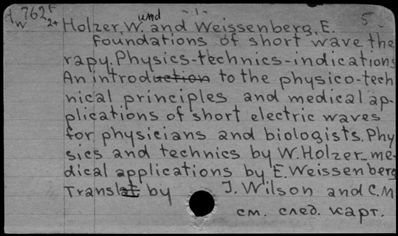 W 762 und 5
Holzer, W. and Weissenberg, E.
Foundations of short wave the
rapy. Physics-technics-indications
An introduction to the physico-tech
nical principles and medical ap-
plications of short electric waves
for physicians and biologists. Phy
sics and technics by W. Holzer-me-
dical applications by E. Weissenberg
Translat by J. Wilson and C.M.
см. след. карт.